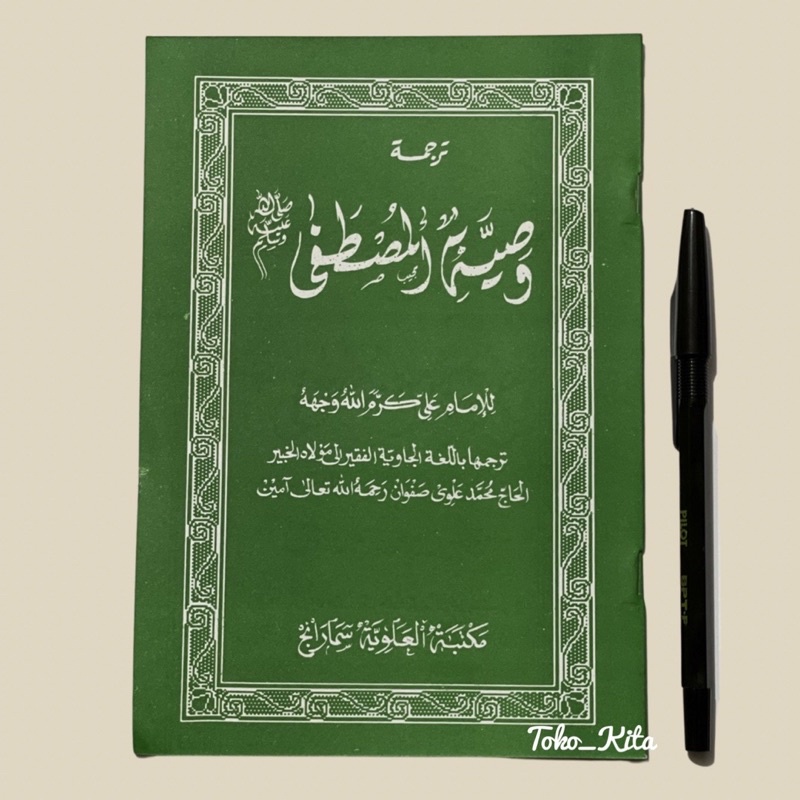 ترجمة
وَصِيَّةُ الْمُصْطَفَى ﷺ
لِلْإِمَامِ عَلِىّ كَرَّمَ اللهُ وَجْهَهُ
ترجمها باللّغة الجاوية الفقير إلى مَوْلاه الخبير
الحَاجّ مُحَمَّد عَلَوِى صَفْوَان رَحِمَهُ الله تعالى آمين
مَكْتَبَةُ الْعَلَوِيَّةُ سَمَارَانج
PILOT BPT-P
Toko_Kita